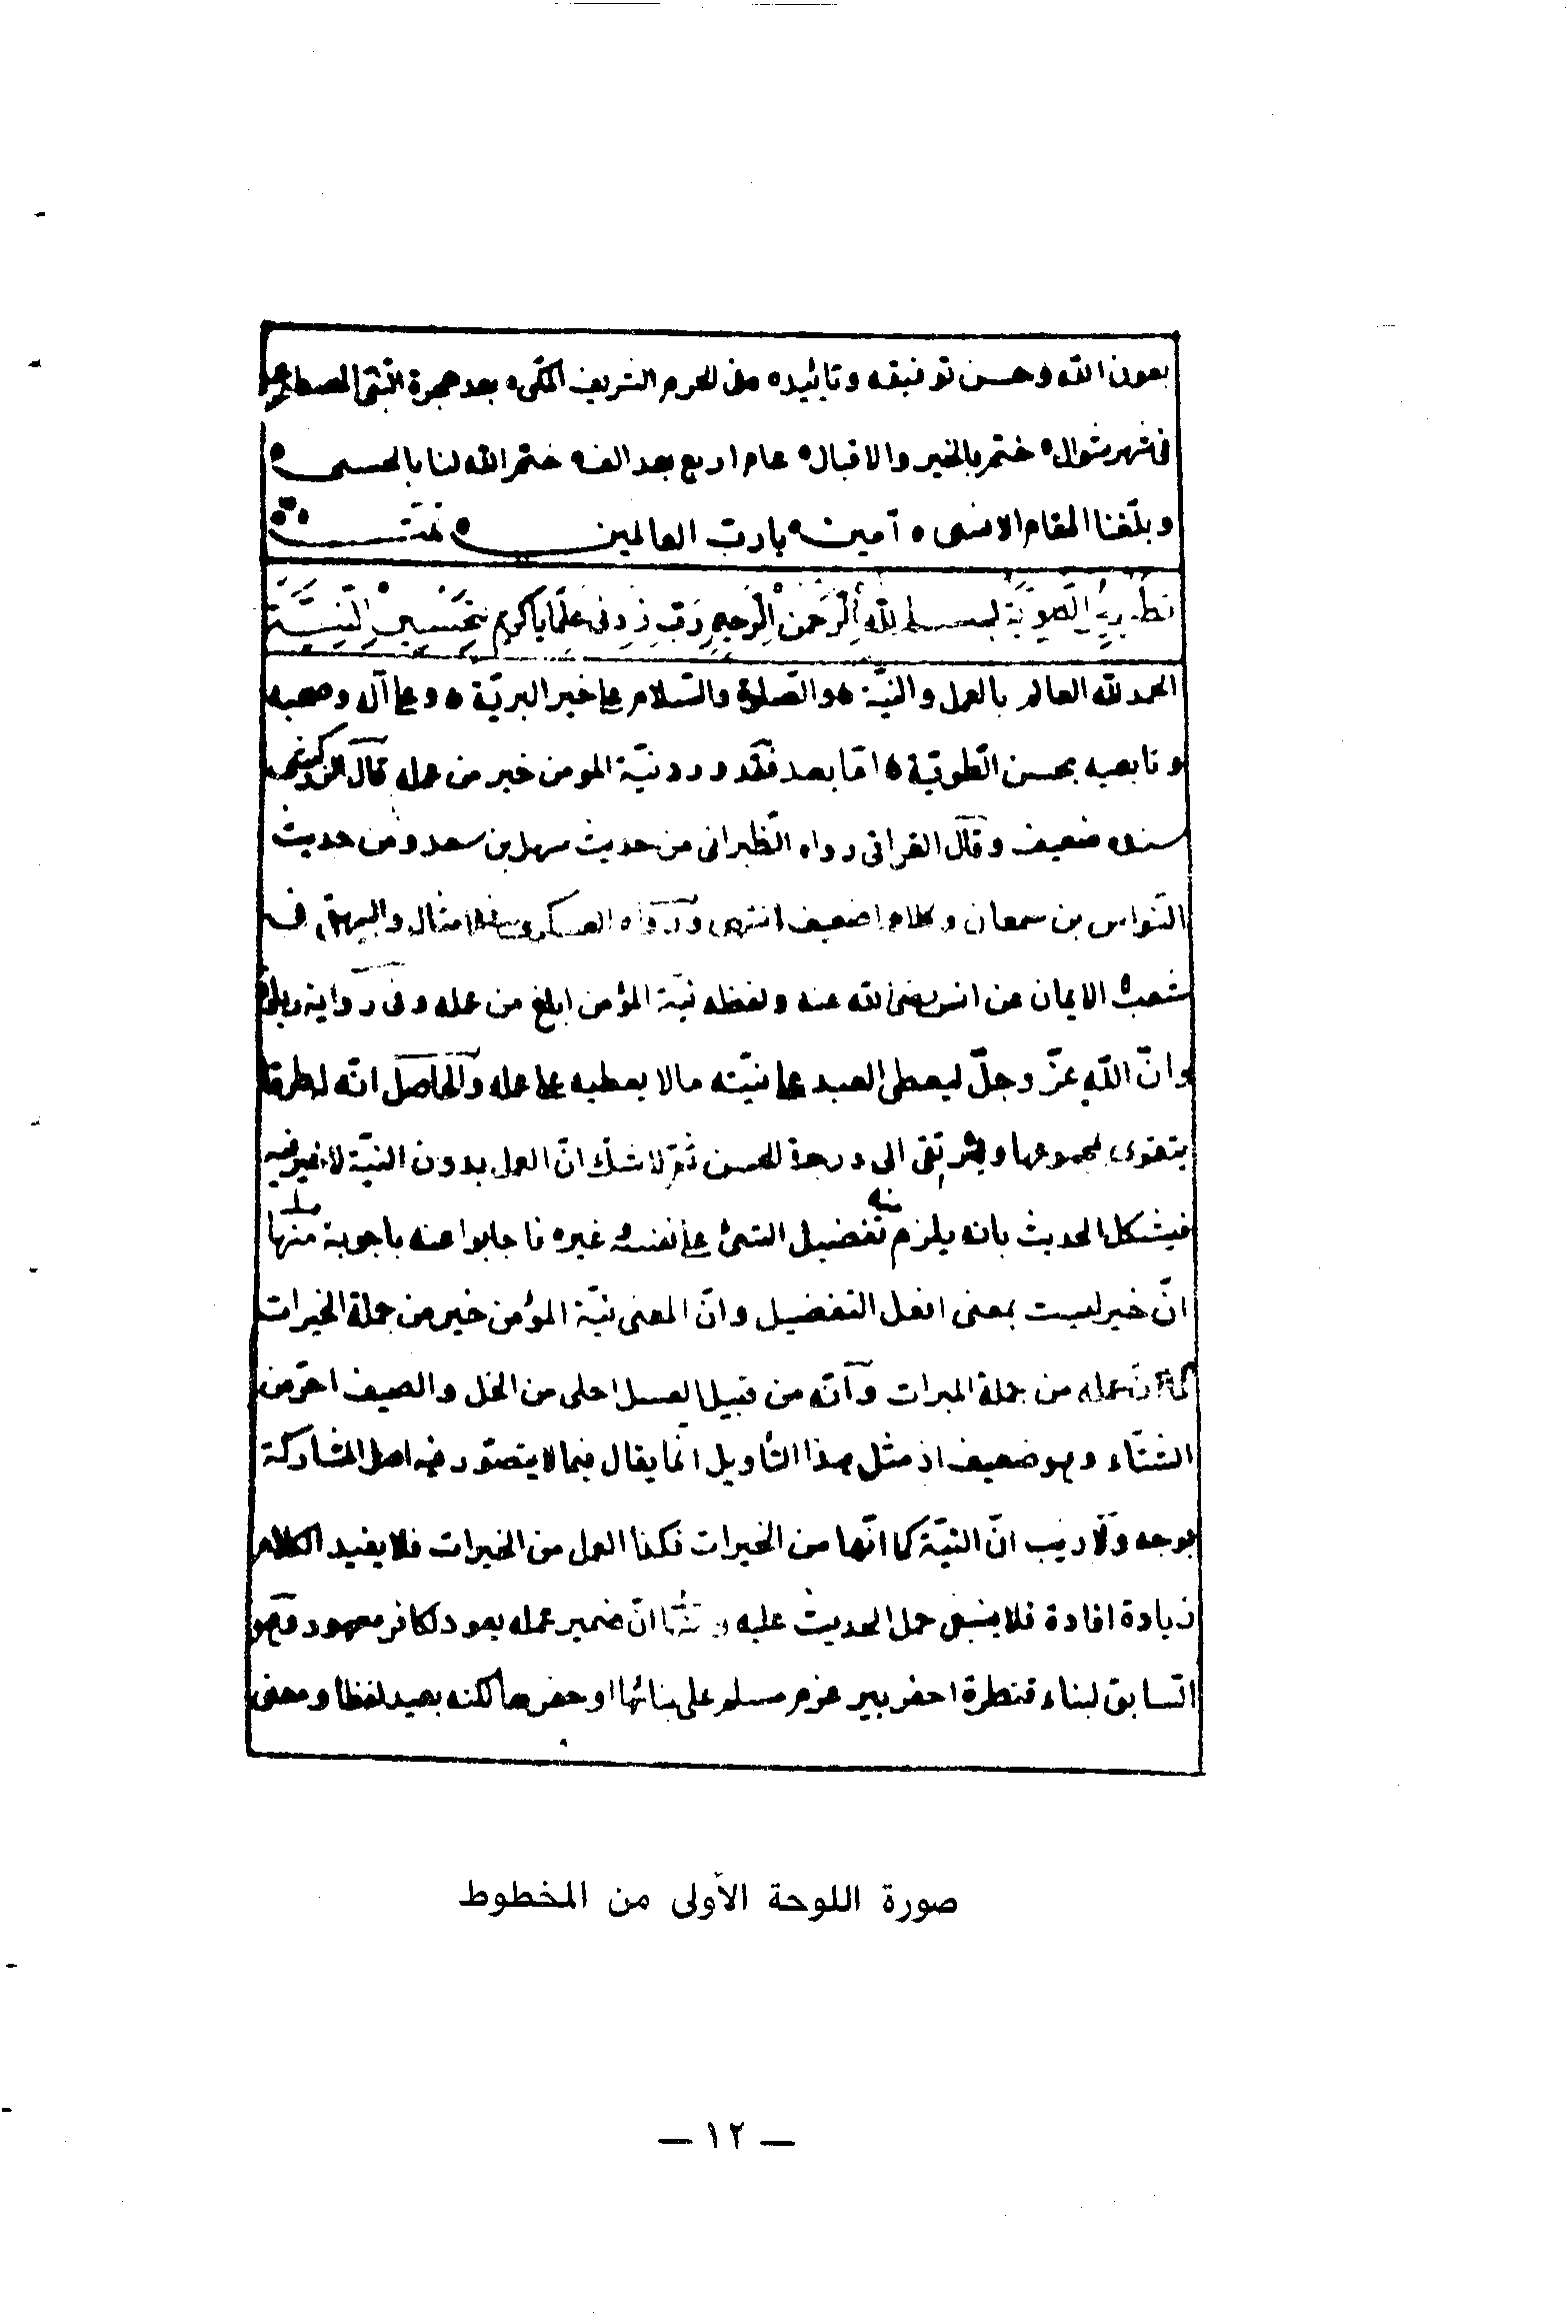 بعون الله وحسن توفيقه وتأييده من الحرم الشريف المكي ه بعد هجرة النبي المصطفى
في شهر شوال ه ختم بالخير والاقبال ه عام اربع بعد الف ه ختم الله لنا بالحسنى ه
وبلغنا المقام الاسنى ه آمين ه يارب العالمين ه تمت
تطهير الطوية بسم الله الرحمن الرحيم رب زدني علما يا كريم بتحسين النية
الحمد لله العالم بالعمل والنيّة ه والصّلوة والسّلام على خير البريّة ه وعلى آله وصحبه
وتابعيه بحسن الطويّة ه امّا بعد فقد ورد نيّة المومن خير من عمله قال الزركشي
سنده ضعيف وقال العراقي رواه الطبراني من حديث سهل بن سعد ومن حديث
النواس بن سمعان وكلاهما ضعيف انتهى ورواه العسكري في الامثال والبيهقي في
شعب الايمان عن انس رضي الله عنه ولفظه نيّة المؤمن ابلغ من عمله وفي رواية
وانّ الله عزّ وجلّ ليعطي العبد على نيّته مالا يعطيه على عمله والحاصل انّه له طرق
يتقوى بمجموعها ويترقى الى درجة الحسن ثم لا شك انّ العمل بدون النيّة لا خير فيه
فيشكل الحديث بانه يلزم منه تفضيل الشئ على نفسه غيره فاجابوا عنه باجوبة منها
انّ خير ليست بمعنى افعل التفضيل وانّ المعنى نيّة المؤمن خير من جملة الخيرات
كما انّ عمله من جملة المبرات وانّه من قبيل العسل احلى من الخل والصيف احرّ من
الشتاء وهو ضعيف اذ مثل هذا التأويل انّما يقال فيما لا يتصوّر فيه اصل المشاركة
بوجه ولا ريب انّ النيّة كما انّها من الخيرات فكذا العمل من الخيرات فلا يفيد الكلام
زيادة افادة فلا ينبغي حمل الحديث عليه انّ ضمير عمله يعود لكافر معهود وهو
السابق لبناء قنطرة احفر بير عزم مسلم على بنائها او حفرها لكنه بعيد لفظا ومعنى
صورة اللوحة الأولى من المخطوط
— ١٢ —